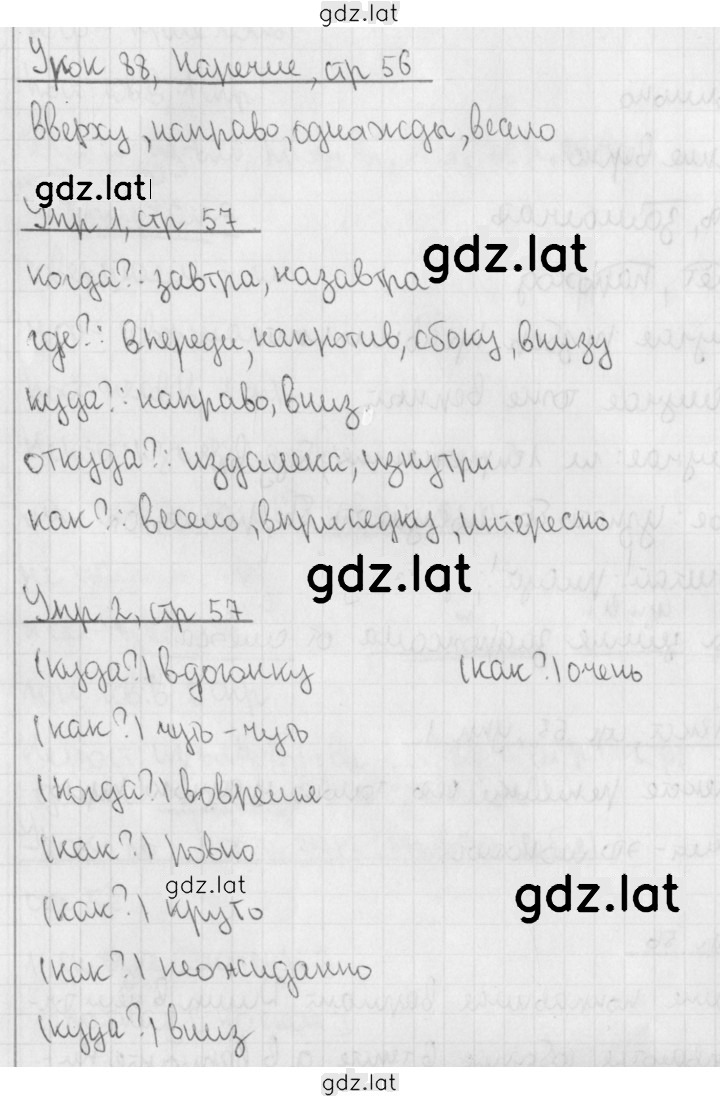 gdz.lat
Урок 88, Наречие, стр 56
вверху, направо, однажды, весело
gdz.lat
Упр 1, стр 57
gdz.lat
когда?: завтра, назавтра
где?: впереди, напротив, сбоку, внизу
куда?: направо, вниз
откуда?: издалека, изнутри
как?: весело, вприглядку, интересно
gdz.lat
Упр 2, стр 57
(куда?) вдогонку (как?) очень
(как?) чуть-чуть
(когда?) вовремя
(как?) ровно
gdz.lat
gdz.lat
(как?) круто
(как?) неожиданно
(куда?) вниз
gdz.lat